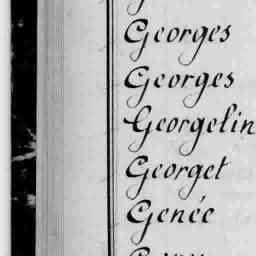 Georges
Georges
Georgelin
Georget
Genée